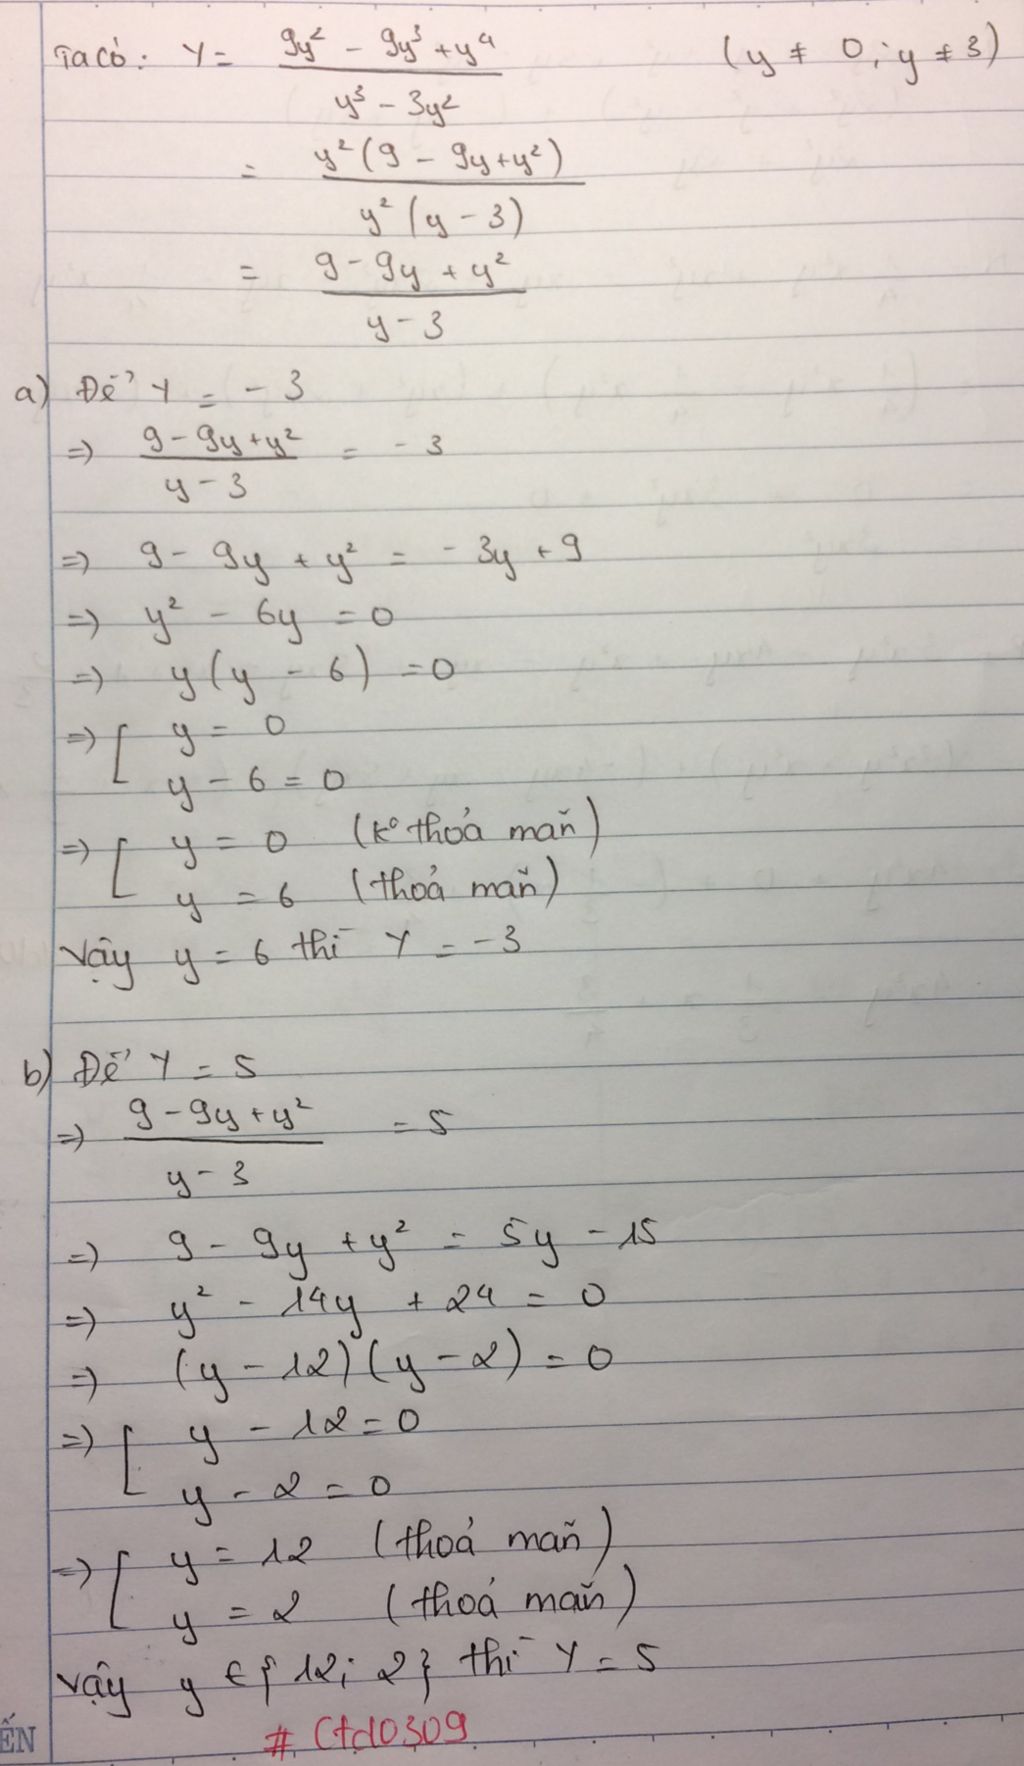 Ta có: Y = (9y² - 9y³ + y⁴)/(y³ - 3y²) (y ≠ 0; y ≠ 3)
= y²(9 - 9y + y²)/y²(y - 3)
= (9 - 9y + y²)/(y - 3)
a) Để Y = -3
=> (9 - 9y + y²)/(y - 3) = -3
=> 9 - 9y + y² = -3y + 9
=> y² - 6y = 0
=> y(y - 6) = 0
=> [ y = 0
y - 6 = 0
=> [ y = 0 (k° thoả mãn)
y = 6 (thoả mãn)
Vậy y = 6 thì Y = -3
b) Để Y = 5
=> (9 - 9y + y²)/(y - 3) = 5
=> 9 - 9y + y² = 5y - 15
=> y² - 14y + 24 = 0
=> (y - 12)(y - 2) = 0
=> [ y - 12 = 0
y - 2 = 0
=> [ y = 12 (thoả mãn)
y = 2 (thoả mãn)
Vậy y ∈ {12; 2} thì Y = 5
# Ctd0309
ẾN